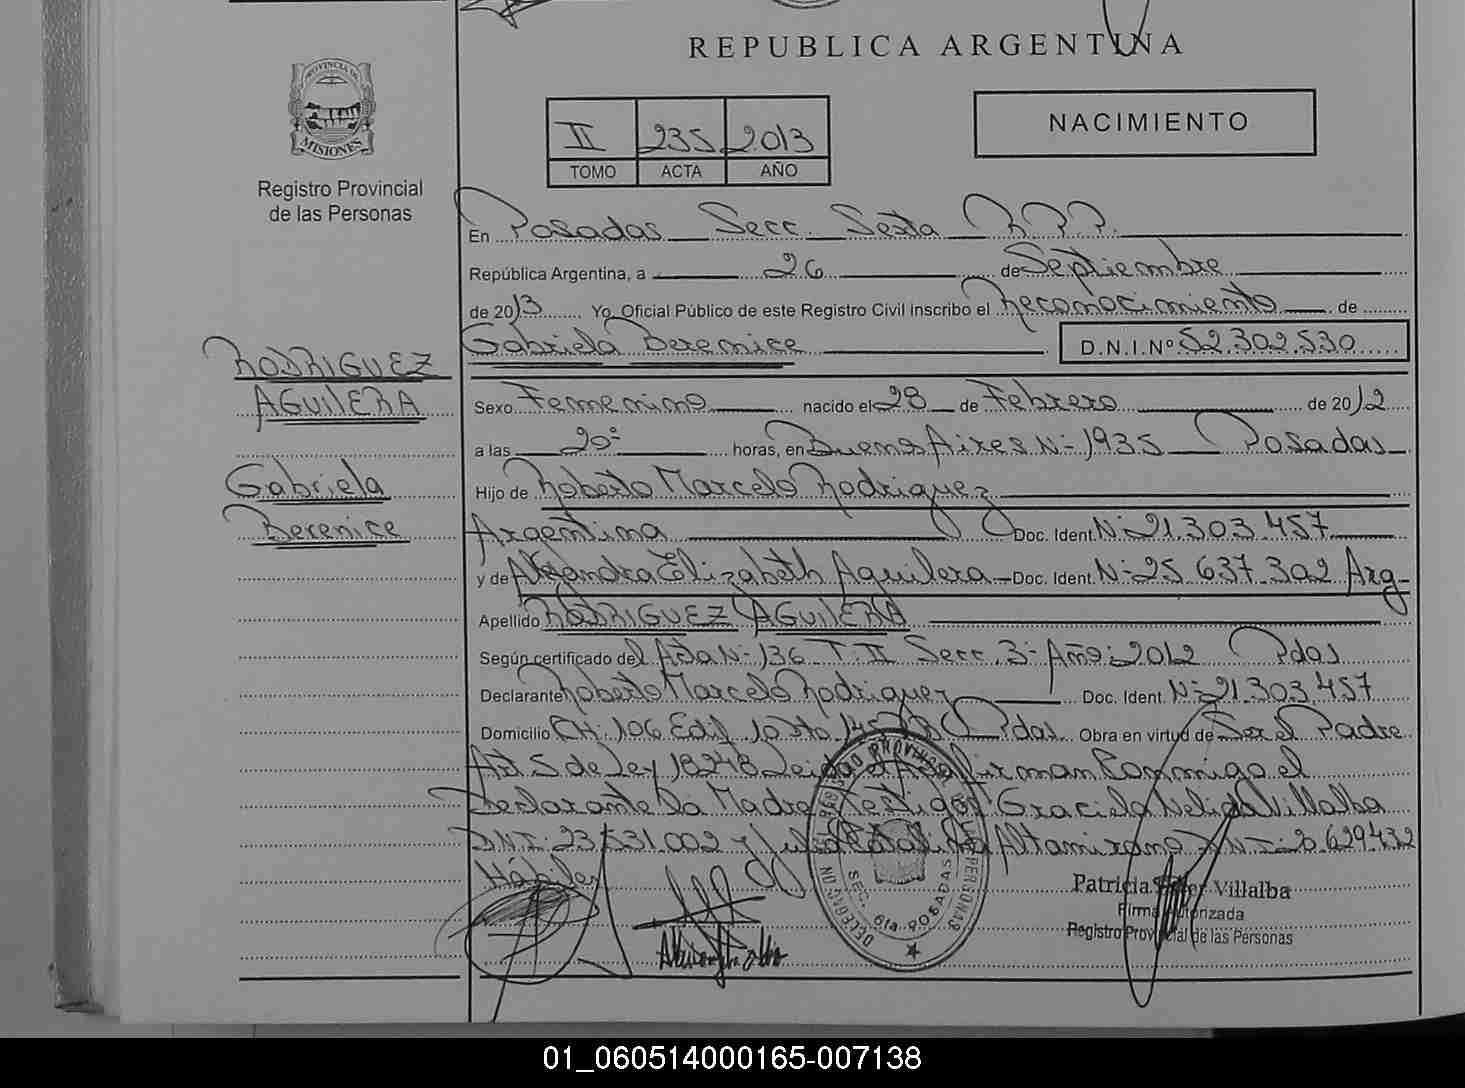 REPUBLICA ARGENTINA
PROVINCIA DE
MISIONES
Registro Provincial
de las Personas
II 235 2013
TOMO ACTA AÑO
NACIMIENTO
En Posadas Secc. Sexta R.P.P.
República Argentina, a 26 de Septiembre
de 2013 Yo, Oficial Público de este Registro Civil inscribo el Reconocimiento de
Gabriela Berenice D.N.I.Nº 52.302.530
RODRIGUEZ
AGUILERA
Gabriela
Berenice
Sexo Femenino nacido el 28 de Febrero de 2012
a las 20º horas, en Buenos Aires Nº 1935 Posadas
Hijo de Roberto Marcelo Rodriguez
Argentina Doc. Ident. Nº 21.303.457
y de Alejandra Elizabeth Aguilera Doc. Ident. Nº 25.637.302 Arg-
Apellido RODRIGUEZ AGUILERA
Según certificado del Acta Nº 136 T: II Secc. 3º Año: 2012 Pdas
Declarante Roberto Marcelo Rodriguez Doc. Ident. Nº 21.303.457
Domicilio CH: 106 Edif 10 Pdas Obra en virtud de Ser el Padre
Art 5 de Ley 18248 Leida el Acta firman Conmigo el
Declarante la Madre Testigos Graciela Nelida Villalba
DNI: 23.531.002 y Altamirano DNI: 20.629.432
Hábiles
DELEGACION DEL REGISTRO PROVINCIAL DE LAS PERSONAS
SEC. 6ta POSADAS
Patricia Villalba
Firma Autorizada
Registro Provincial de las Personas
01_060514000165-007138